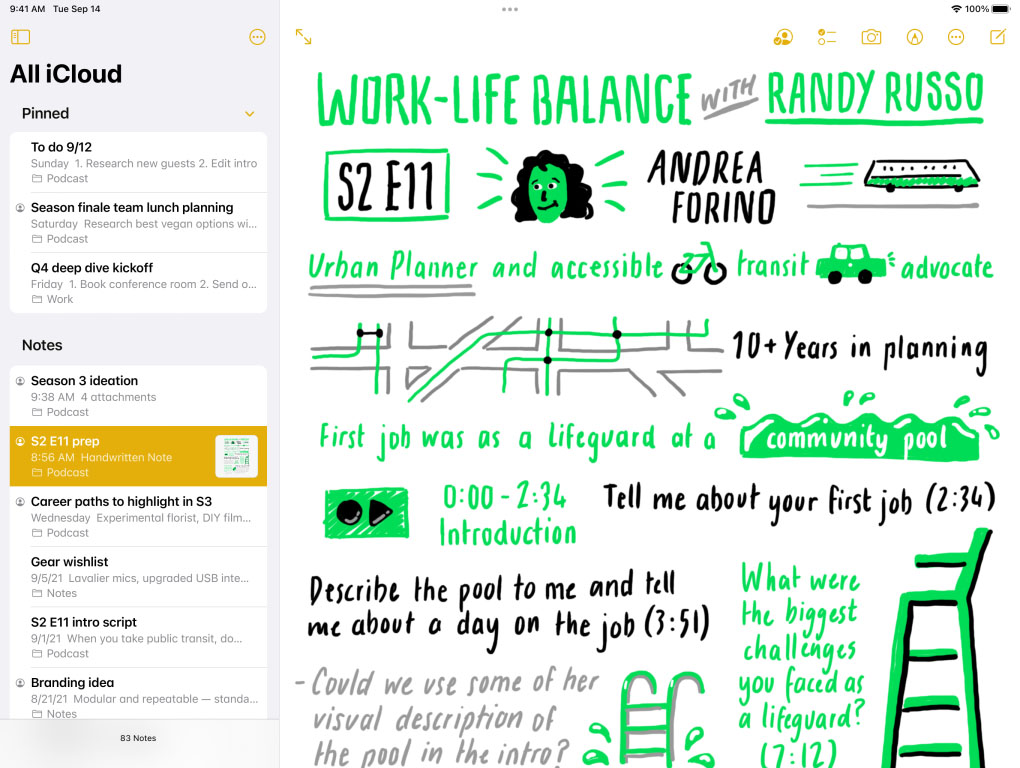 9:41 AM Tue Sep 14
100%
All iCloud
Pinned
To do 9/12
Sunday 1. Research new guests 2. Edit intro
Podcast
Season finale team lunch planning
Saturday Research best vegan options wi...
Podcast
Q4 deep dive kickoff
Friday 1. Book conference room 2. Send o...
Work
Notes
Season 3 ideation
9:38 AM 4 attachments
Podcast
S2 E11 prep
8:56 AM Handwritten Note
Podcast
Career paths to highlight in S3
Wednesday Experimental florist, DIY film...
Podcast
Gear wishlist
9/5/21 Lavalier mics, upgraded USB inte...
Notes
S2 E11 intro script
9/1/21 When you take public transit, do...
Podcast
Branding idea
8/21/21 Modular and repeatable — standa...
Notes
83 Notes
WORK-LIFE BALANCE WITH RANDY RUSSO
S2 E11
ANDREA
FORINO
Urban Planner and accessible transit advocate
10+ Years in planning
First job was as a lifeguard at a community pool
0:00 - 2:34
Introduction
Tell me about your first job (2:34)
Describe the pool to me and tell
me about a day on the job (3:51)
- Could we use some of her
visual description of
the pool in the intro?
What were
the biggest
challenges
you faced as
a lifeguard?
(7:12)